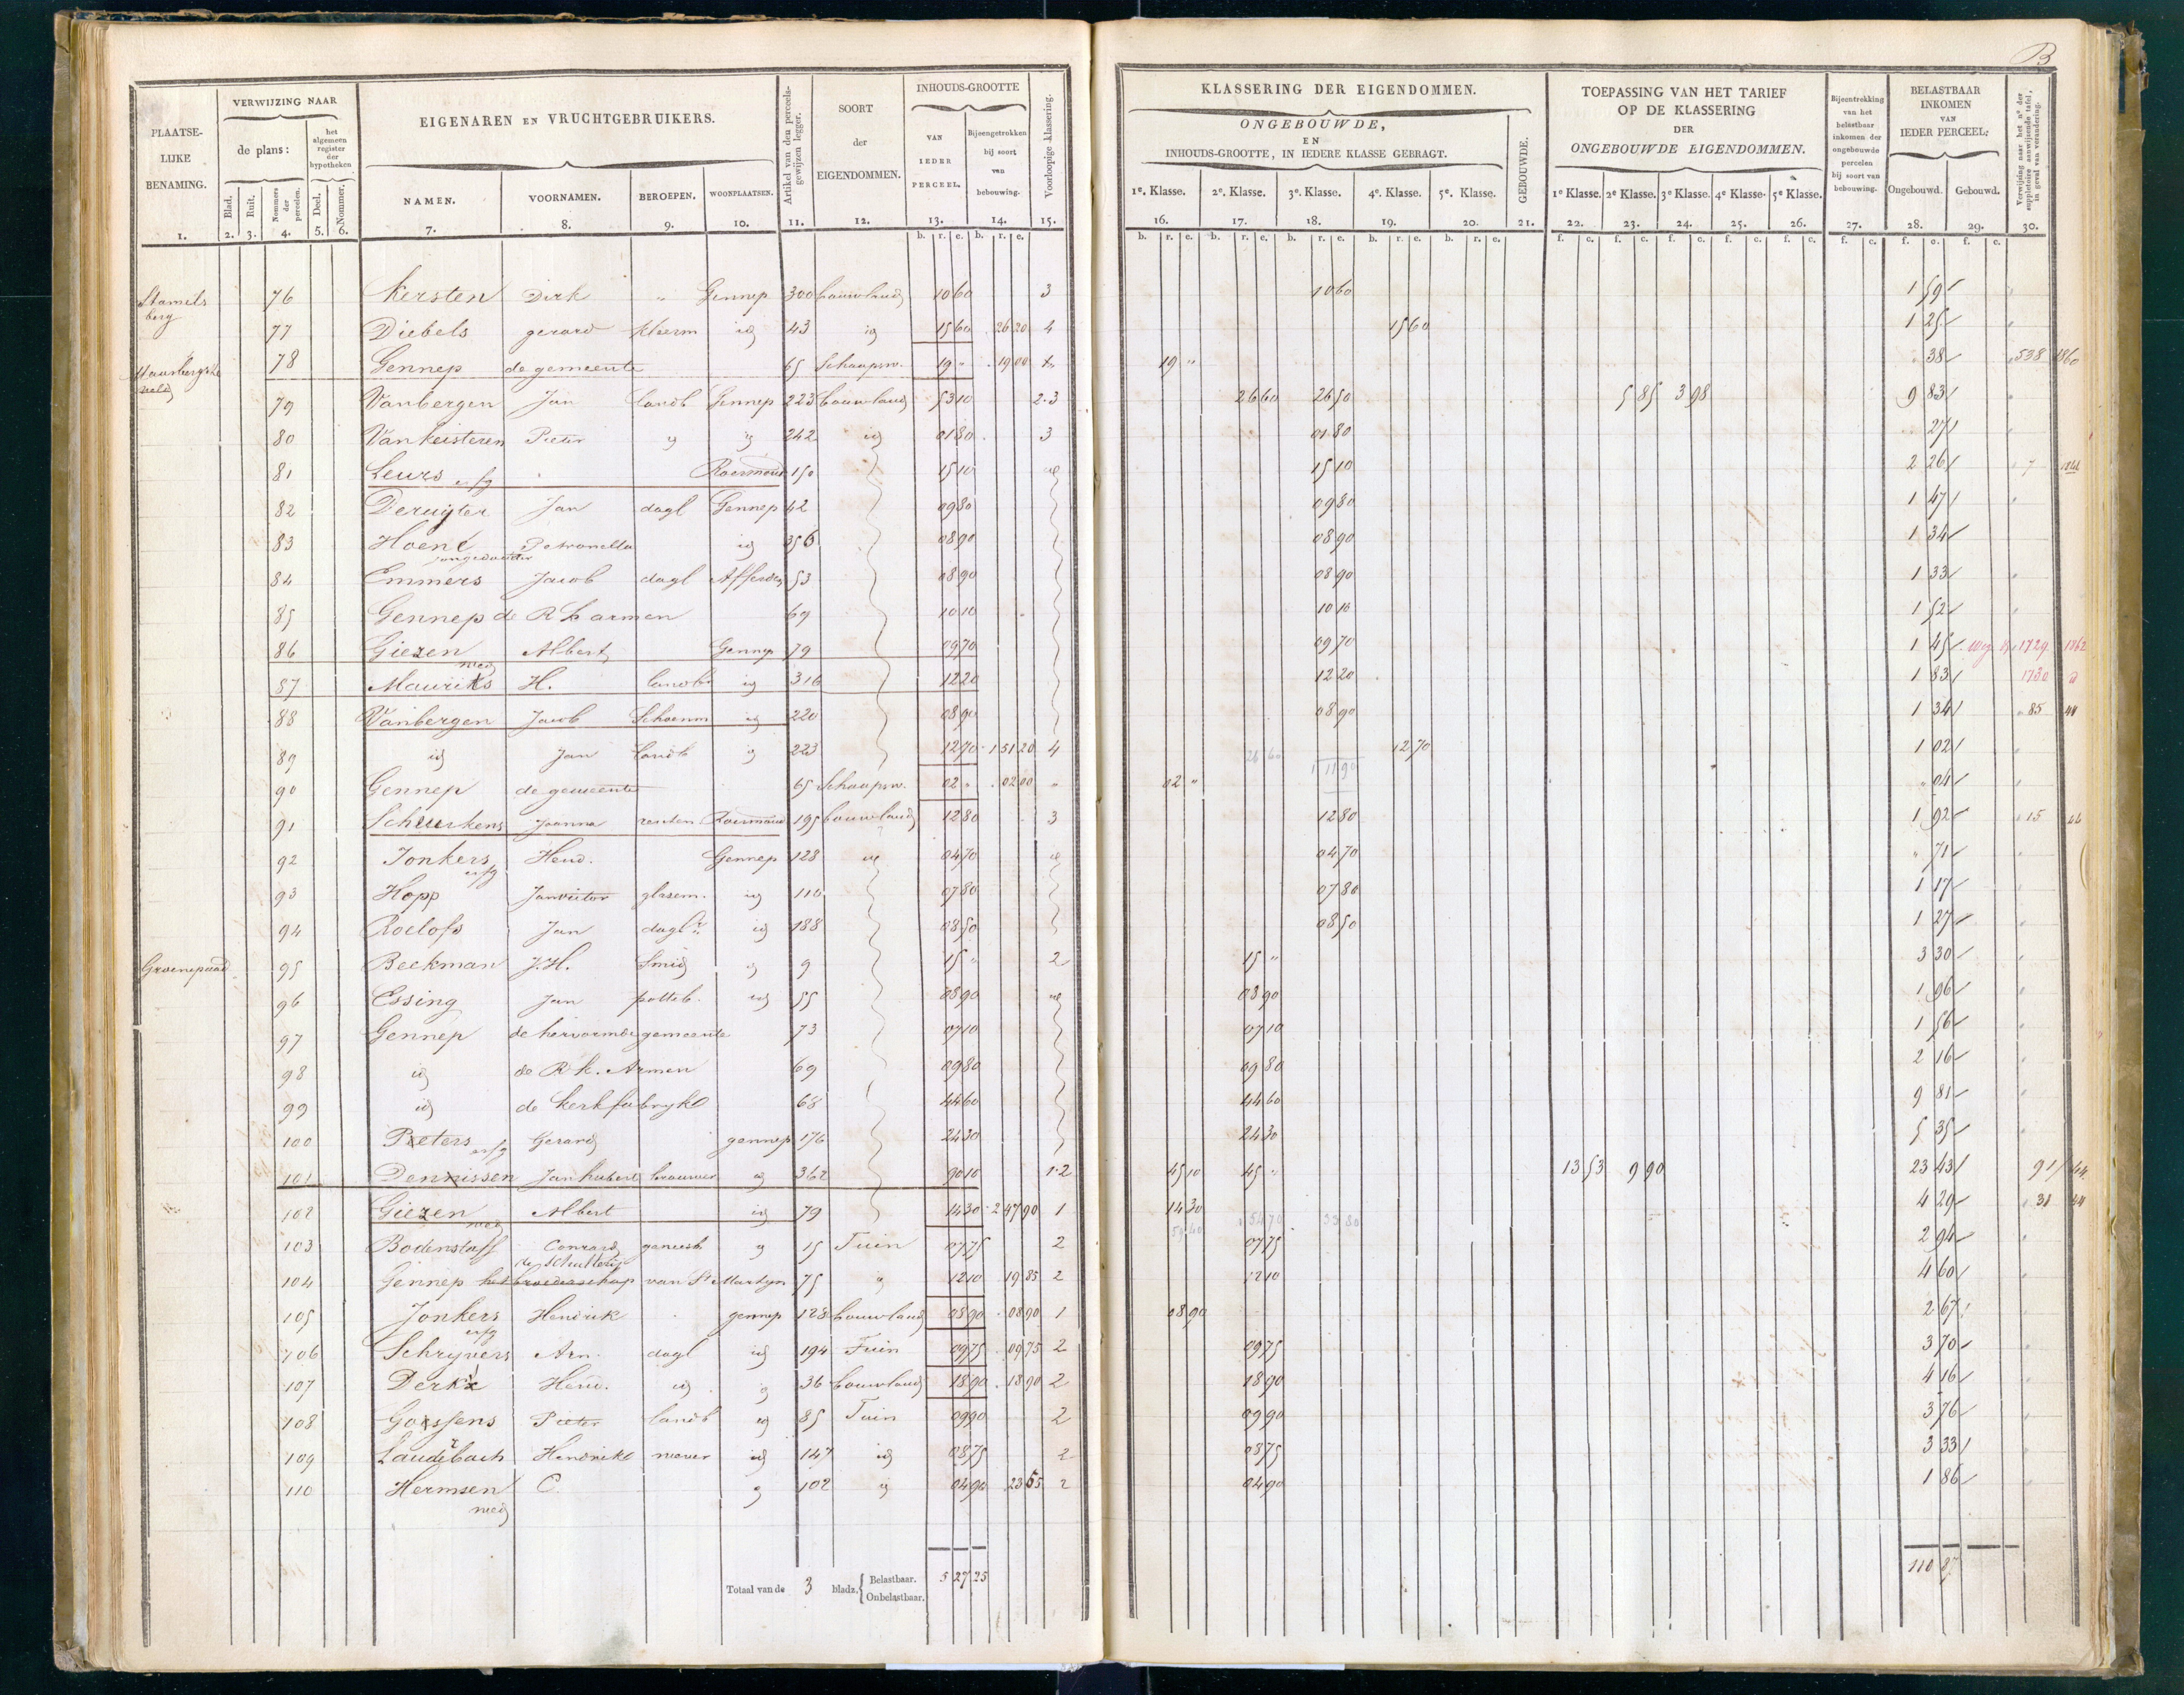 B
PLAATSELIJKE BENAMING.
VERWIJZING NAAR
de plans:
het algemeen register der hypotheken
Blad. Ruit. Nommers der perceelen. Deel. Nommer.
EIGENAREN EN VRUCHTGEBRUIKERS.
NAMEN. VOORNAMEN. BEROEPEN. WOONPLAATSEN.
Artikel van den perceelsgewijzen legger.
SOORT der EIGENDOMMEN.
INHOUDS-GROOTTE
VAN IEDER PERCEEL. Bijeengetrokken bij soort van bebouwing.
Voorloopige klassering.
KLASSERING DER EIGENDOMMEN.
ONGEBOUWDE,
EN
INHOUDS-GROOTTE, IN IEDERE KLASSE GEBRAGT.
1e. Klasse. 2e. Klasse. 3e. Klasse. 4e. Klasse. 5e. Klasse.
GEBOUWDE.
TOEPASSING VAN HET TARIEF
OP DE KLASSERING
DER
ONGEBOUWDE EIGENDOMMEN.
1e Klasse. 2e Klasse. 3e Klasse. 4e Klasse. 5e Klasse.
Bijeentrekking van het belastbaar inkomen der ongebouwde perceelen bij soort van bebouwing.
BELASTBAAR INKOMEN VAN IEDER PERCEEL:
Ongebouwd. Gebouwd.
Verwijzing naar het no. der suppletoire aanwijzende tafel, in geval van verandering.
1. 2. 3. 4. 5. 6. 7. 8. 9. 10. 11. 12. 13. 14. 15. 16. 17. 18. 19. 20. 21. 22. 23. 24. 25. 26. 27. 28. 29. 30.
Stamelsberg 76 Kersten Dirk " Gennep 300 bouwland 10 60 3 10 60 1 59
77 Diebels gerard kleerm id 43 id 15 60 26 20 4 15 60 1 25
veld 78 Gennep de gemeente 65 Schaapsw. 19 " 19 00 19 " " 38 538 1860
79 Vanbergen Jan landb Gennep 223 bouwland 53 10 2.3 26 60 26 50 5 85 3 98 9 83
80 Vankeisteren Pieter id id 242 id 01 80 3 01 80 27
81 Leurs erfg Roermond 150 15 10 id 15 10 2 26 7
82 Deruijter Jan dagl Gennep 42 09 80 09 80 1 47
83 Hoene Petronella jongedochter id 356 08 90 08 90 1 34
84 Emmers Jacob dagl Afferden 53 08 90 08 90 1 33
85 Gennep de R k armen 69 10 10 10 10 1 52
86 Giezen wed Albert Gennep 79 09 70 09 70 1 45 1729 1862
87 Maurits H. landb id 316 12 20 12 20 1 83 1730
88 Vanbergen Jacob Schoenm id 220 08 90 08 90 1 34 85 44
89 id Jan landb id 223 12 70 1 51 20 4 26 60 1 11 90 12 70 1 02
90 Gennep de gemeente 65 Schaapsw. 02 " 02 00 " 02 " " 04
91 Scheurkens Joanna renten Roermond 195 bouwland 12 80 3 12 80 1 92 15 44
92 Jonkers erfg Hend. Gennep 128 id 04 70 id 04 70 " 71
93 Hopp Janvictor glasem. id 110 07 80 07 80 1 17
94 Roelofs Jan daglr id 188 08 50 08 50 1 27
Groenepaad 95 Beekman J.H. Smid id 9 15 " 2 15 " 3 30
96 Essing Jan potteb. id 55 08 90 id 08 90 1 96
97 Gennep de hervormde gemeente 73 07 10 07 10 1 56
98 id de R. k. Armen 69 09 80 09 80 2 16
99 id de kerkfabryke 68 44 60 44 60 9 81
100 Peters erfg Gerard gennep 176 24 30 24 30 5 35
101 Dennissen Jan hubert brouwer id 362 90 10 1.2 45 10 45 " 13 53 9 90 23 43 91 44
102 Giezen wed Albert id 79 14 30 2 47 90 1 14 30 4 29 38 44
59 40 1 54 70 33 80
103 Bodenstaff Conrard geneesh id 15 Tuin 07 75 2 07 75 2 94
de schutterij
104 Gennep het broederschap van St Martijn 75 id 12 10 19 85 2 12 10 4 60
105 Jonkers erfg Hendrik gennep 128 bouwland 08 90 08 90 1 08 90 2 67
106 Schryvers Arn. dagl id 194 Tuin 09 75 09 75 2 09 75 3 70
107 Derks Hend. id id 36 bouwland 18 90 18 90 2 18 90 4 16
108 Gossens Pieter landb id 85 Tuin 09 90 2 09 90 3 76
109 Laudebach Hendrike wever id 147 id 08 75 2 08 75 3 33
110 Hermsen wed C. id 102 id 04 90 23 55 2 04 90 1 86
Totaal van de 3 bladz. Belastbaar. 5 27 25 110 87
Onbelastbaar.